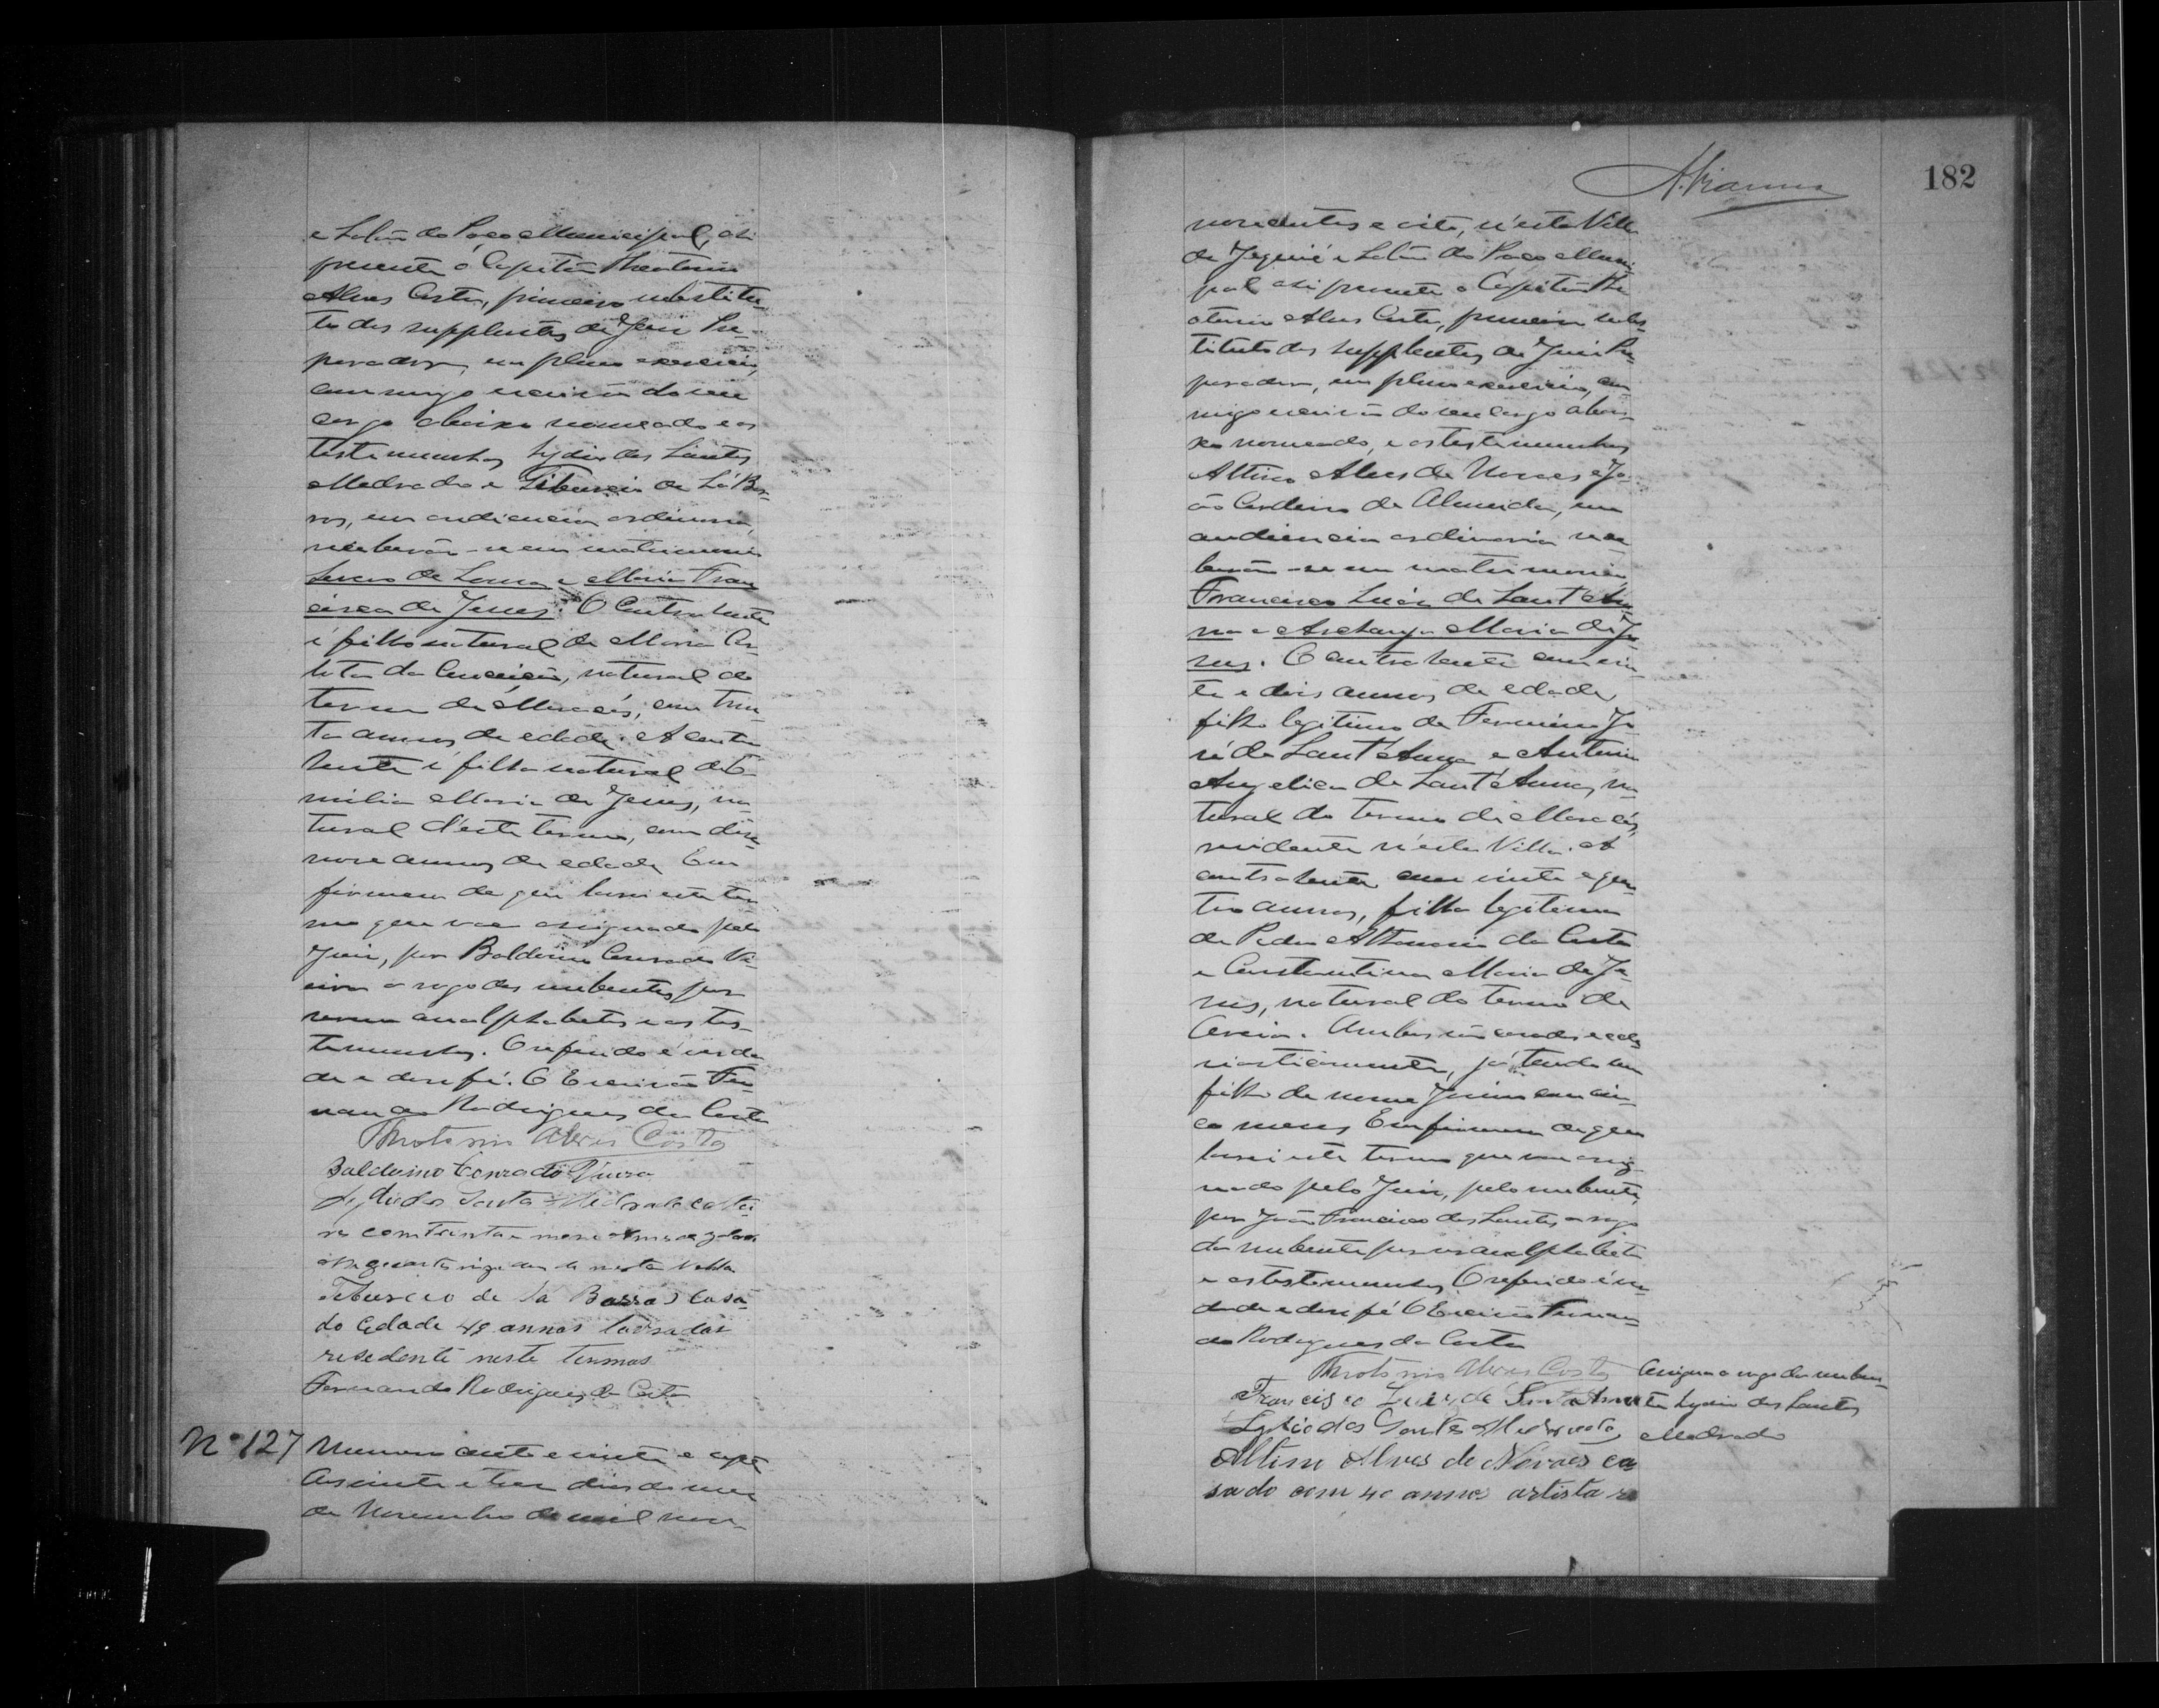 e Salão do Paço Municipal, ahi
presente o Capitão Theotonio
Alves Costa, primeiro substitu-
to dos supplentes do Juiz Pre-
parador, em pleno exercicio,
commigo escrivão do seu
cargo abaixo nomeado e as
testemunhas Lydio dos Santos
Medrado e Tiburcio de Sá Bar-
ros, em audiencia ordinaria,
receberão-se em matrimonio
de Souza e Maria Fran
cisca de Jesus. O Contrahente
é filho natural de Maria Car
lota da Conceição, natural do
termo de Maracás, com trin-
ta annos de edade. A contra
hente é filha natural de E-
milia Maria de Jesus, na-
tural d'este termo, com deze
nove annos de edade Em
firmesa do que lavrei este ter
mo que vae assignado pelo
Juiz, por Balduino Conrado Vi-
eira a rogo dos nubentes por
serem analphabetos e as tes-
temunhas. O referido é verda
de e dou fé. O Escrivão Fer-
nando Rodrigues da Costa
Theotonio Alves Costa
Balduino Conrado Vieira
Lydio dos Santos Medrado
com trinta e nove annos
nesta Villa
Tiburcio de Sá Barros Casa-
do Edade 49 annos lavrador
residente neste termos
Fernando Rodrigues da Costa
Nº 127 Numero cento e vinte e sete
Aos vinte e tres dias do mez
de Novembro de mil nove-
182
A. Vianna
novecentos e oito, n'esta Villa
de Jequié e Salão do Paço Muni
pal ahi presente o Capitão The
otonio Alves Costa, primeiro subs-
tituto dos supplentes do Juiz Pre-
parador, em pleno exercicio, com
migo escrivão do seu cargo abai-
xo nomeado, e as testemunhas
Altino Alves de Novaes e Jo-
ão Cordeiro de Almeida, em
audiencia ordinaria rece
berão-se em matrimonio
Francisco Luiz de Sant'An
na e Archanja Maria de Je
sus. O contrahente com vin
te e dois annos de edade,
filho legitimo de Fermino Jo
sé de Sant'Anna e Antonia
Angelica de Sant'Anna, na
tural do termo de Maracás,
residente n'esta Villa. A
contrahente com vinte e qua
tro annos, filha legitima
de Pedro Athanasio da Costa
e Constantina Maria de Je
sus, natural do termo de
Areia. Ambos são casados eccle
siasticamente, já tendo um
filho de nome com cin-
co mezes Em firmesa do que
lavrei este termo que vae assig-
nado pelo Juiz, pelo nubente,
por João Francisco dos Santos a rogo
da nubente por ser analphabeta
e as testemunhas. O referido é ver
dade e dou fé O Escrivão Fernan-
do Rodrigues da Costa
Theotonio Alves Costa
Francisco Luiz de Santa Anna
Lydio dos Santos Medrado
Assigna a rogo da nuben-
te Lydio dos Santos
Medrado
Altino Alves de Novaes ca
sado com 40 annos artista re